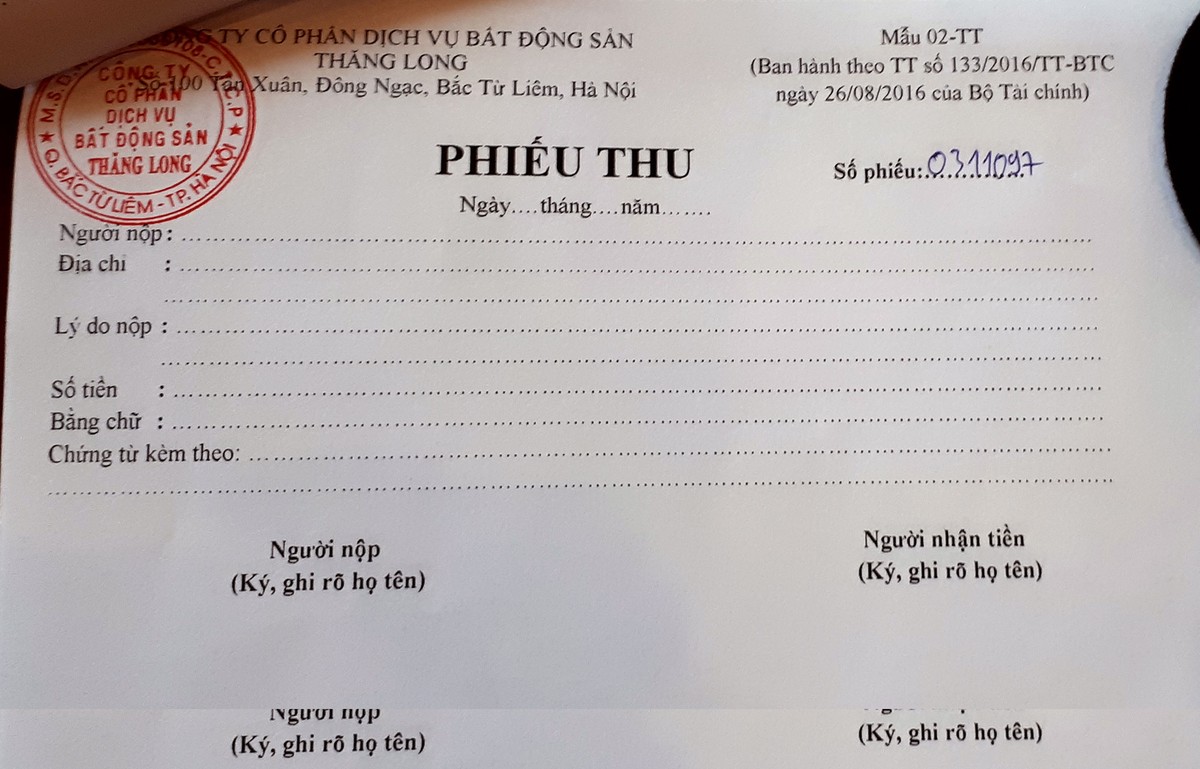 TY CỔ PHẦN DỊCH VỤ BẤT ĐỘNG SẢN
THĂNG LONG
Số 100 Tân Xuân, Đông Ngạc, Bắc Từ Liêm, Hà Nội
Mẫu 02-TT
(Ban hành theo TT số 133/2016/TT-BTC
ngày 26/08/2016 của Bộ Tài chính)
CÔNG TY
CỔ PHẦN
DỊCH VỤ
BẤT ĐỘNG SẢN
THĂNG LONG
Q. BẮC TỪ LIÊM - TP. HÀ NỘI
PHIẾU THU
Số phiếu: 0311097
Ngày....tháng....năm.......
Người nộp :
Địa chỉ :
Lý do nộp :
Số tiền :
Bằng chữ :
Chứng từ kèm theo:
Người nộp
(Ký, ghi rõ họ tên)
Người nhận tiền
(Ký, ghi rõ họ tên)
Người nộp
(Ký, ghi rõ họ tên)
(Ký, ghi rõ họ tên)